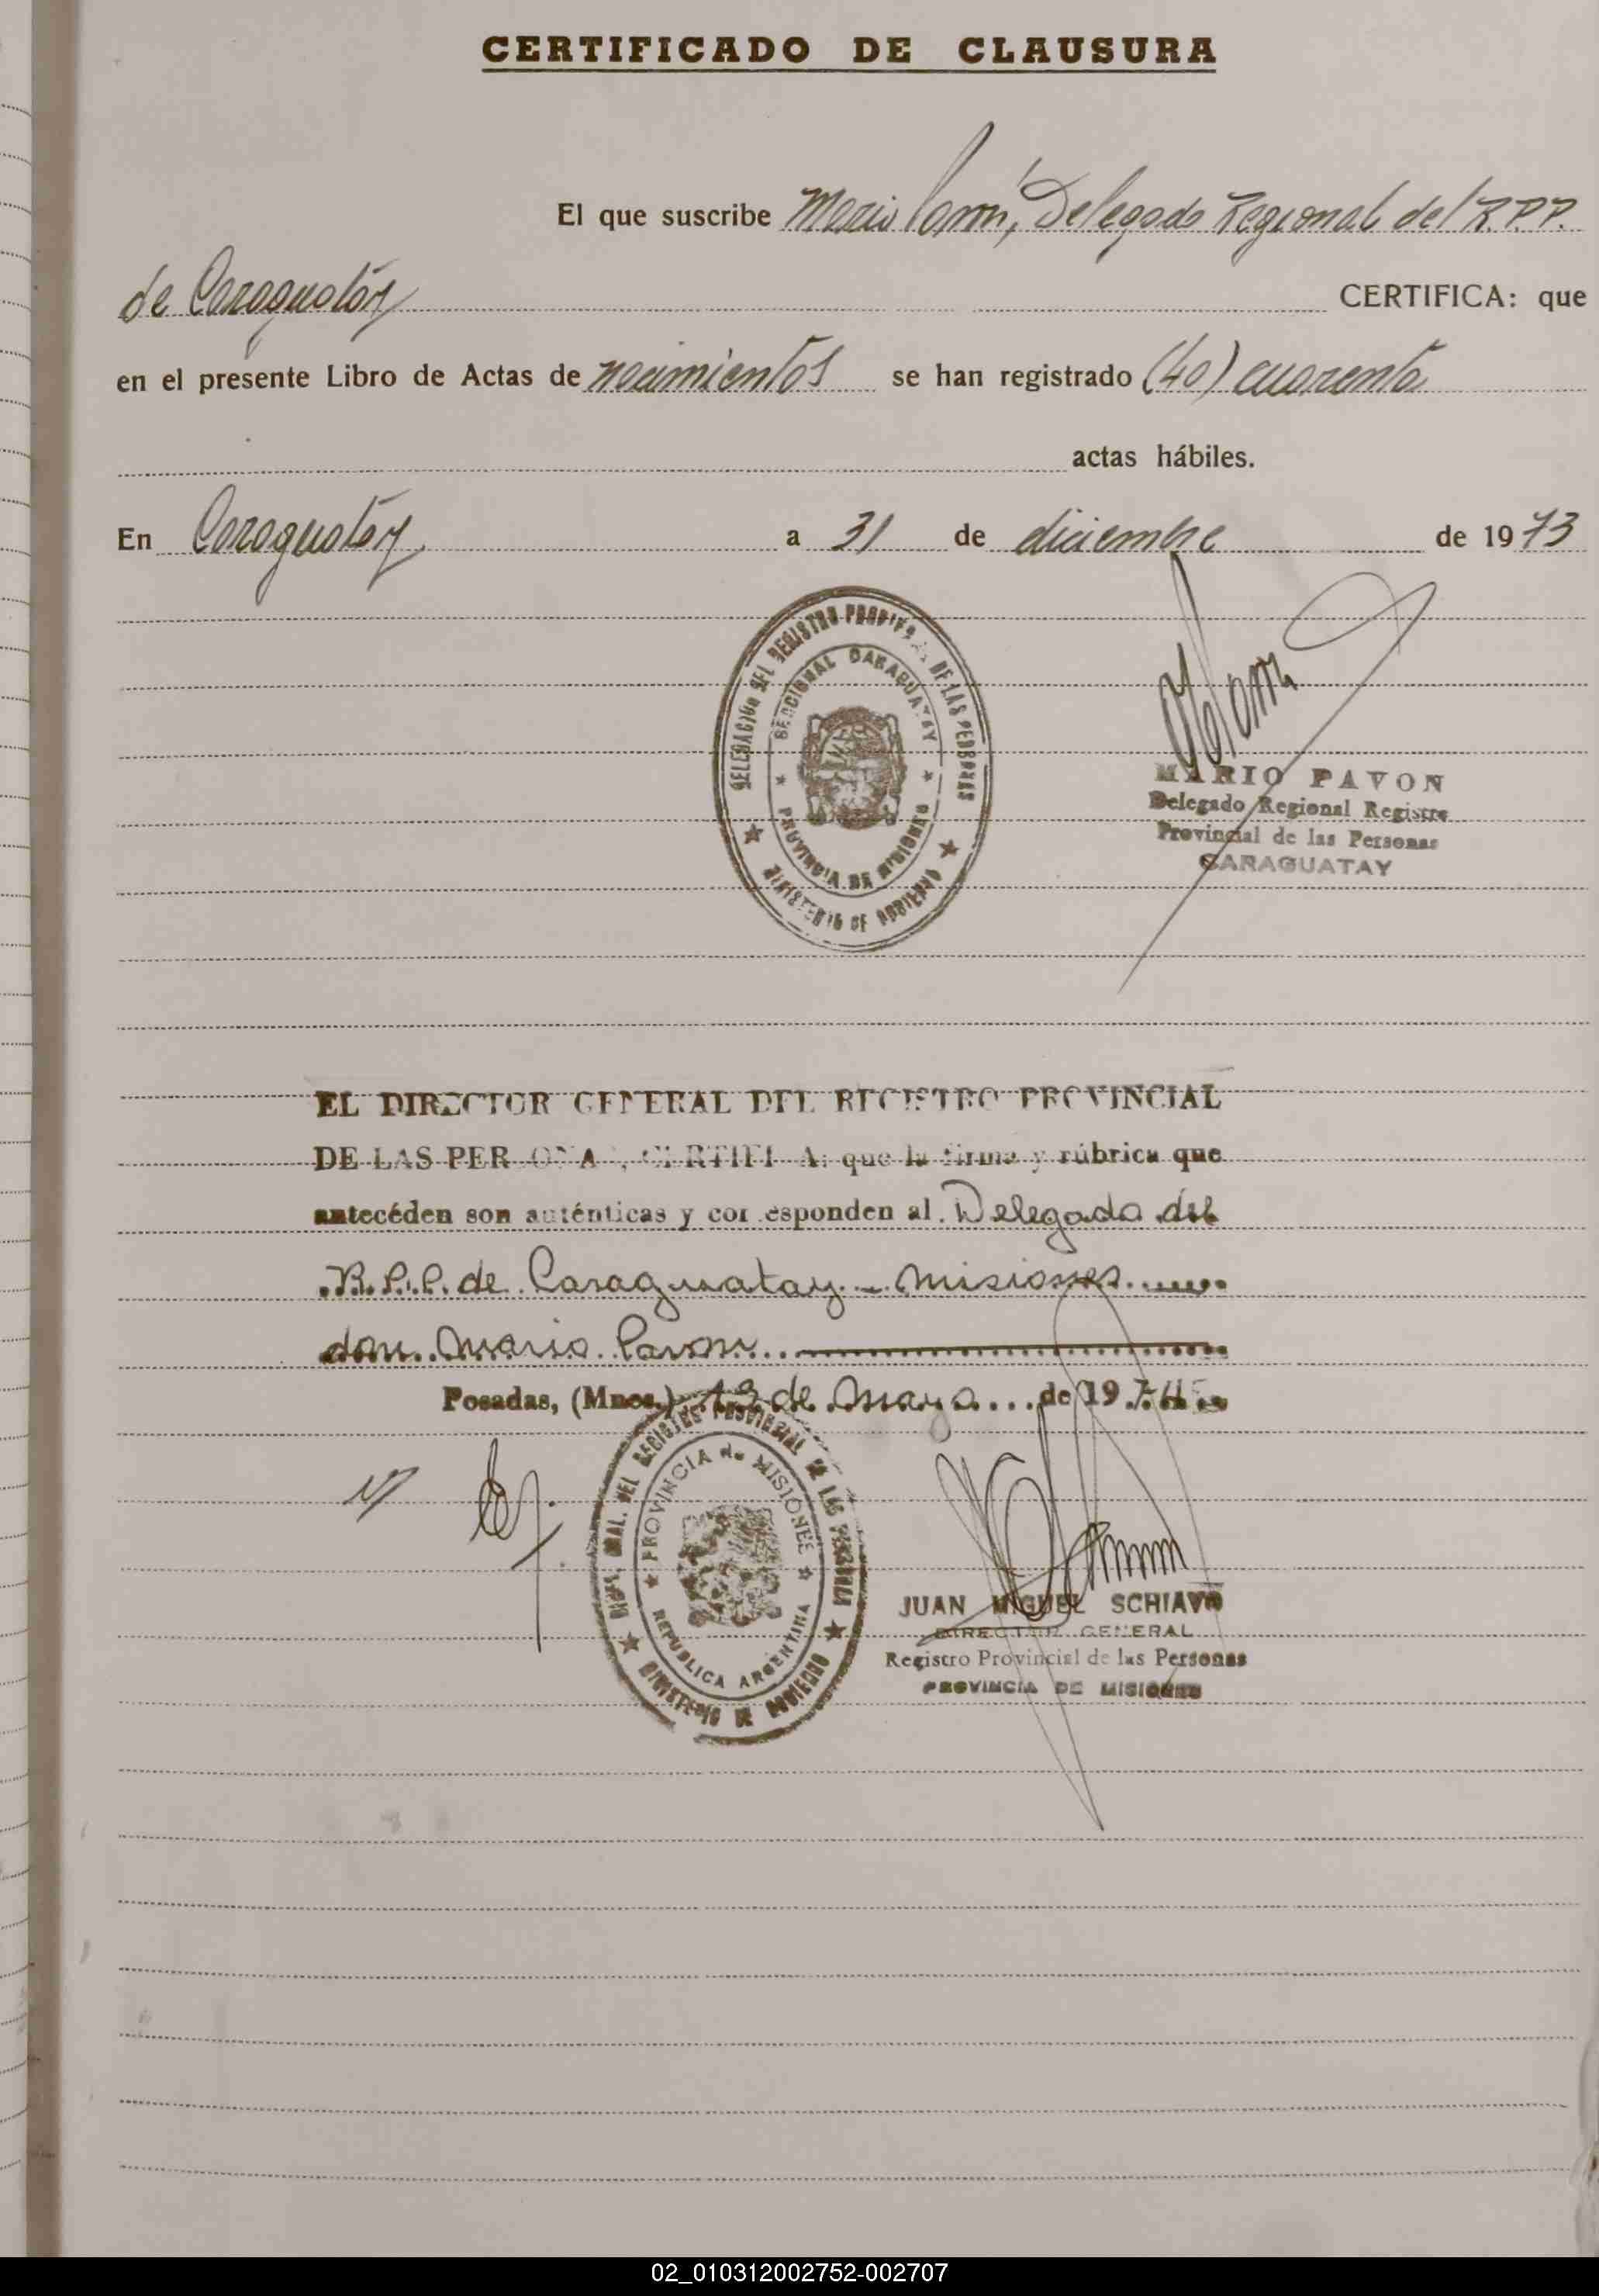 CERTIFICADO DE CLAUSURA
El que suscribe Mario Pavon, Delegado Regional del R.P.P.
de Caraguatay CERTIFICA: que
en el presente Libro de Actas de nacimientos se han registrado (40) cuarenta
actas hábiles.
En Caraguatay a 31 de diciembre de 1973
DELEGACION DEL REGISTRO PROVINCIAL DE LAS PERSONAS
SECCIONAL CARAGUATAY
PROVINCIA DE MISIONES
MINISTERIO DE GOBIERNO
MARIO PAVON
Delegado Regional Registro
Provincial de las Personas
CARAGUATAY
EL DIRECTOR GENERAL DEL REGISTRO PROVINCIAL
DE LAS PERSONAS, CERTIFICA: que la firma y rúbrica que
antecéden son auténticas y corresponden al Delegado del
R.P.P. de Caraguatay - Misiones
don Mario Pavon
Posadas, (Mnes.) 13 de Mayo de 1974
DIREC. GRAL. DEL REGISTRO PROVINCIAL DE LAS PERSONAS
PROVINCIA de MISIONES
REPUBLICA ARGENTINA
MINISTERIO DE GOBIERNO
JUAN MIGUEL SCHIAVO
DIRECTOR GENERAL
Registro Provincial de las Personas
PROVINCIA DE MISIONES
02_010312002752-002707